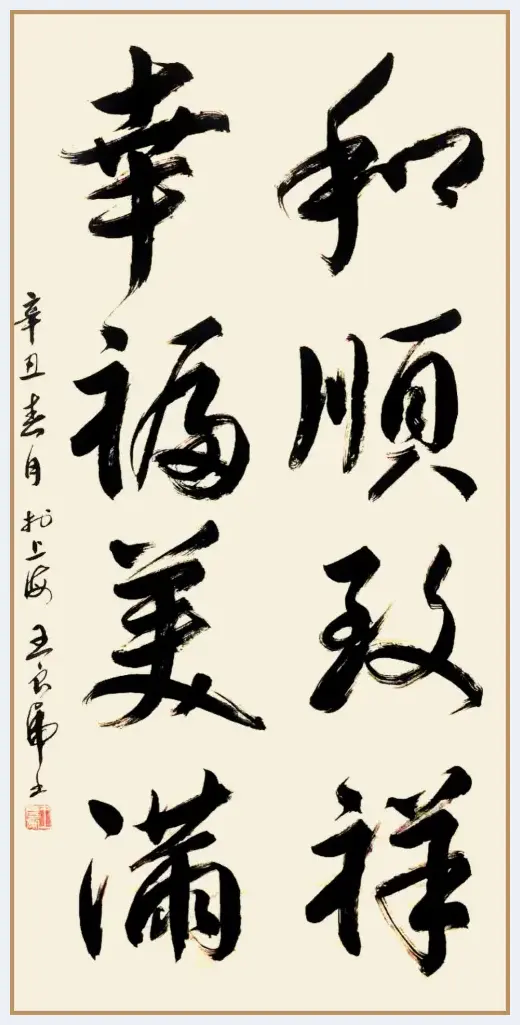 和順致祥
幸福美滿
辛丑春月於上海王良虎书